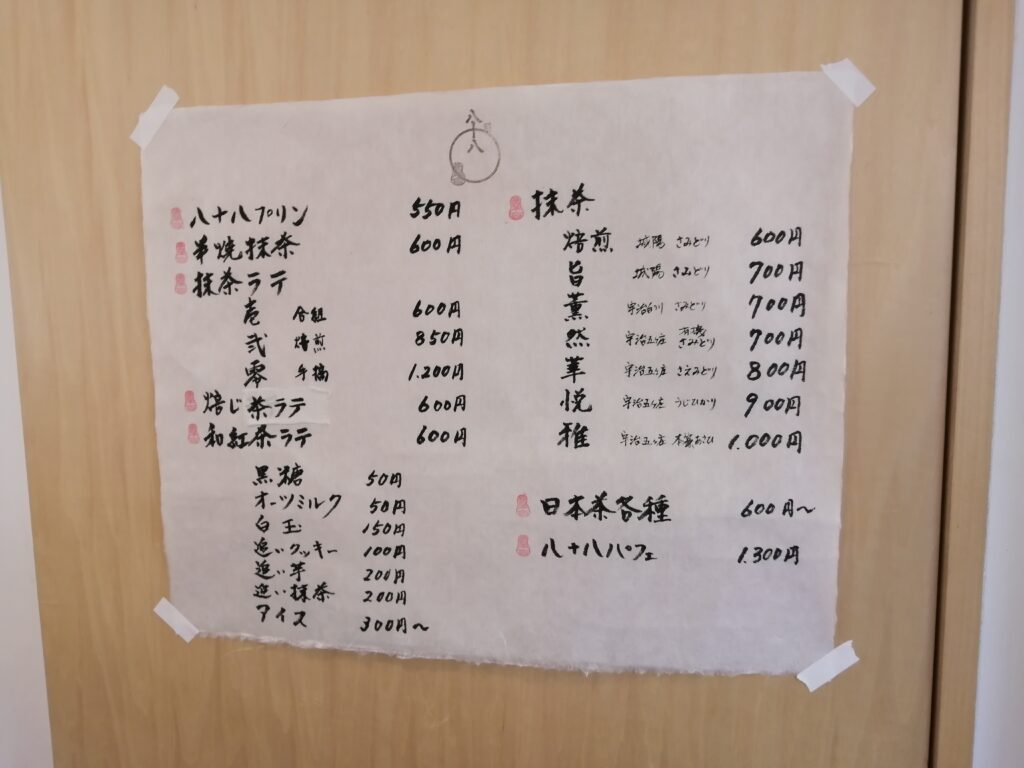 八十八
八十八プリン 550円
串焼抹茶 600円
抹茶ラテ
壱 合組 600円
弐 焙煎 850円
零 手摘 1.200円
焙じ茶ラテ 600円
和紅茶ラテ 600円
黒糖 50円
オーツミルク 50円
白玉 150円
追いクッキー 100円
追い芋 200円
追い抹茶 200円
アイス 300円〜
抹茶
焙煎 城陽 さみどり 600円
旨 城陽 さみどり 700円
薫 宇治白川 さみどり 700円
然 宇治五ヶ庄 有機さみどり 700円
華 宇治五ヶ庄 さえみどり 800円
悦 宇治五ヶ庄 うじひかり 900円
雅 宇治五ヶ庄 本簀あさひ 1.000円
日本茶各種 600円〜
八十八パフェ 1.300円